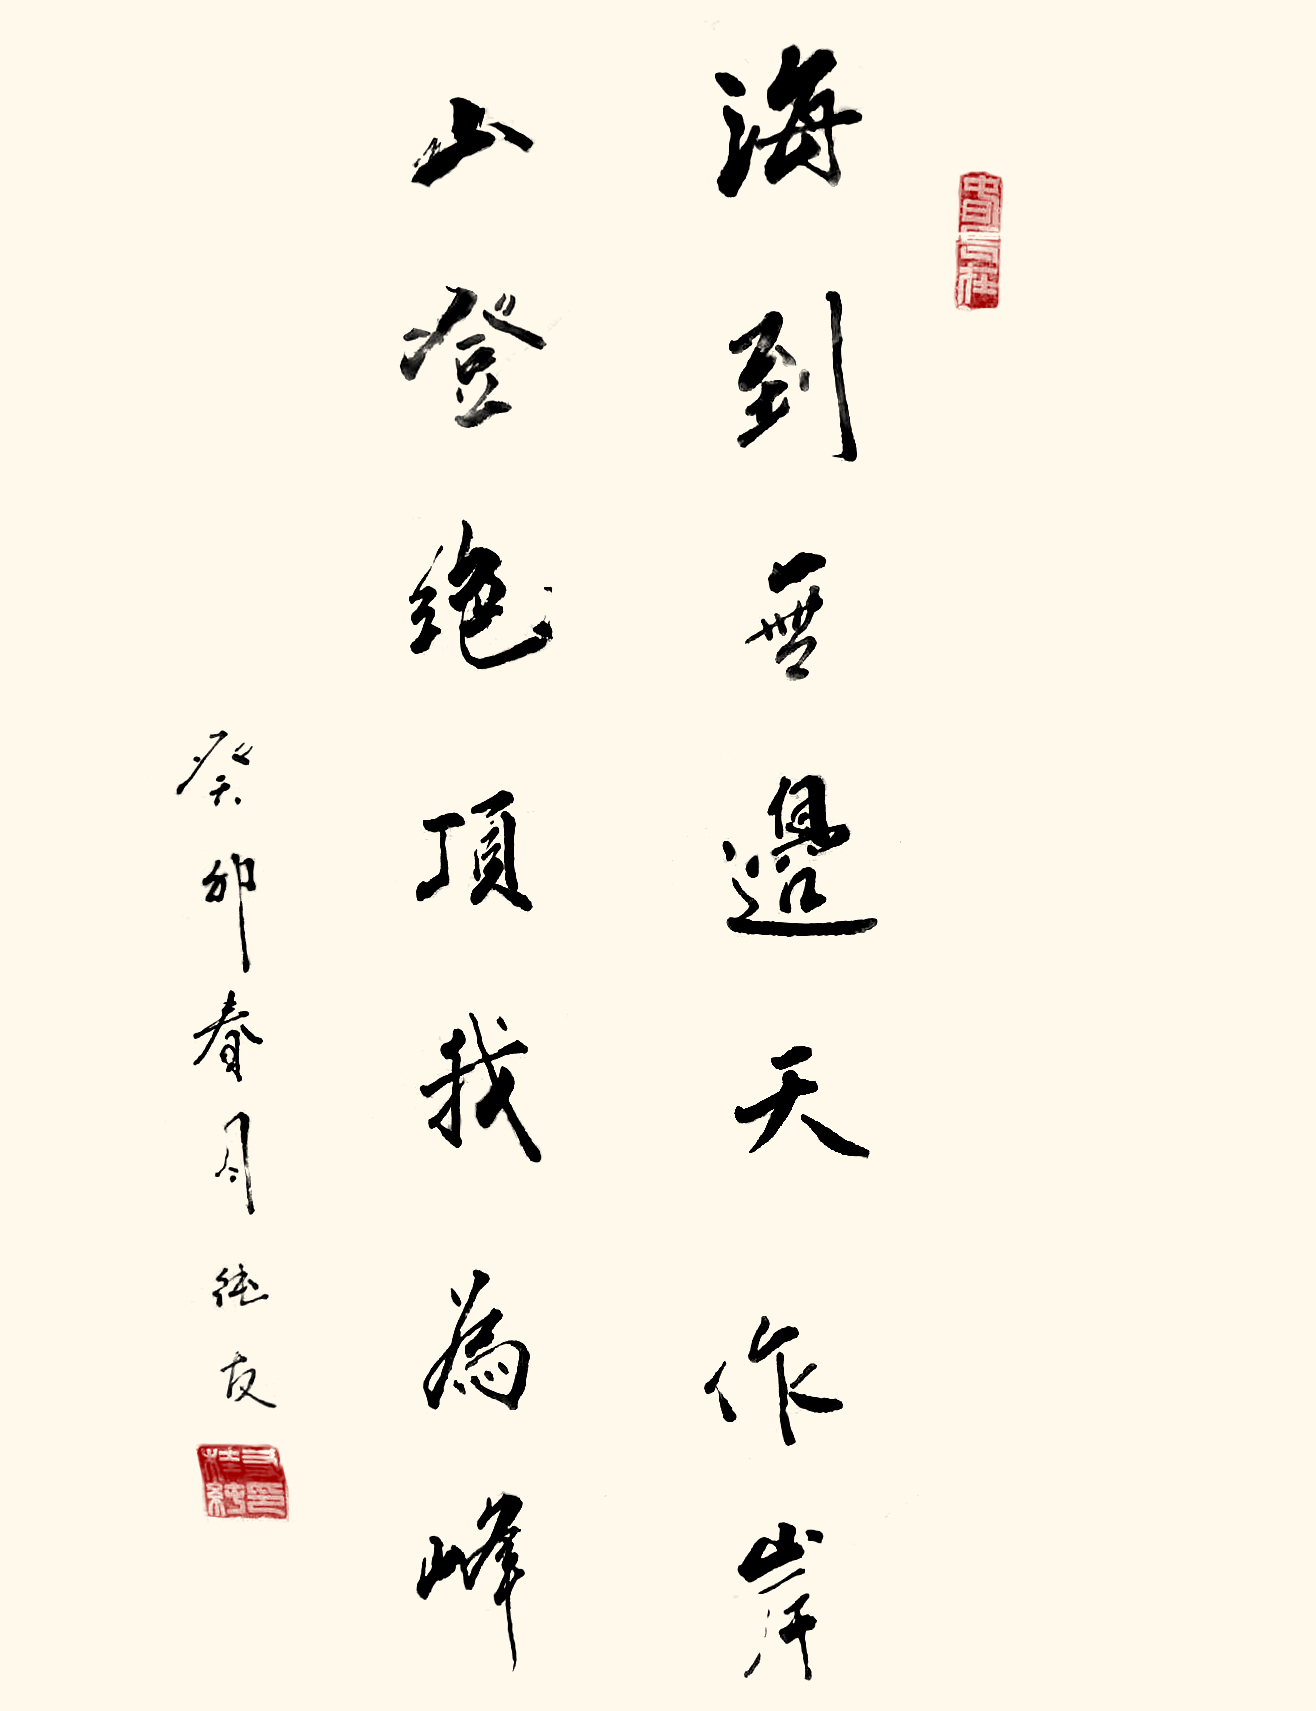 海到無邊天作岸
山登絕頂我為峰
癸卯春月德友